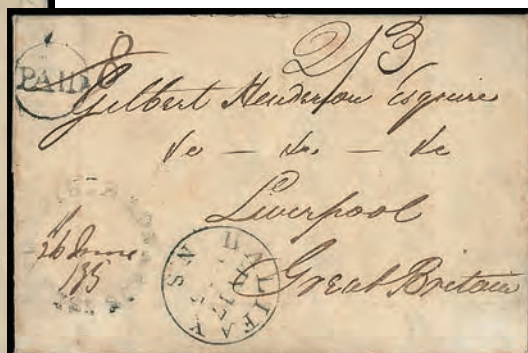 2/3
PAID 8
Gilbert Henderson Esquire
&c — &c — &c
Liverpool
Great Britain
26 June
185
HALIFAX
N S